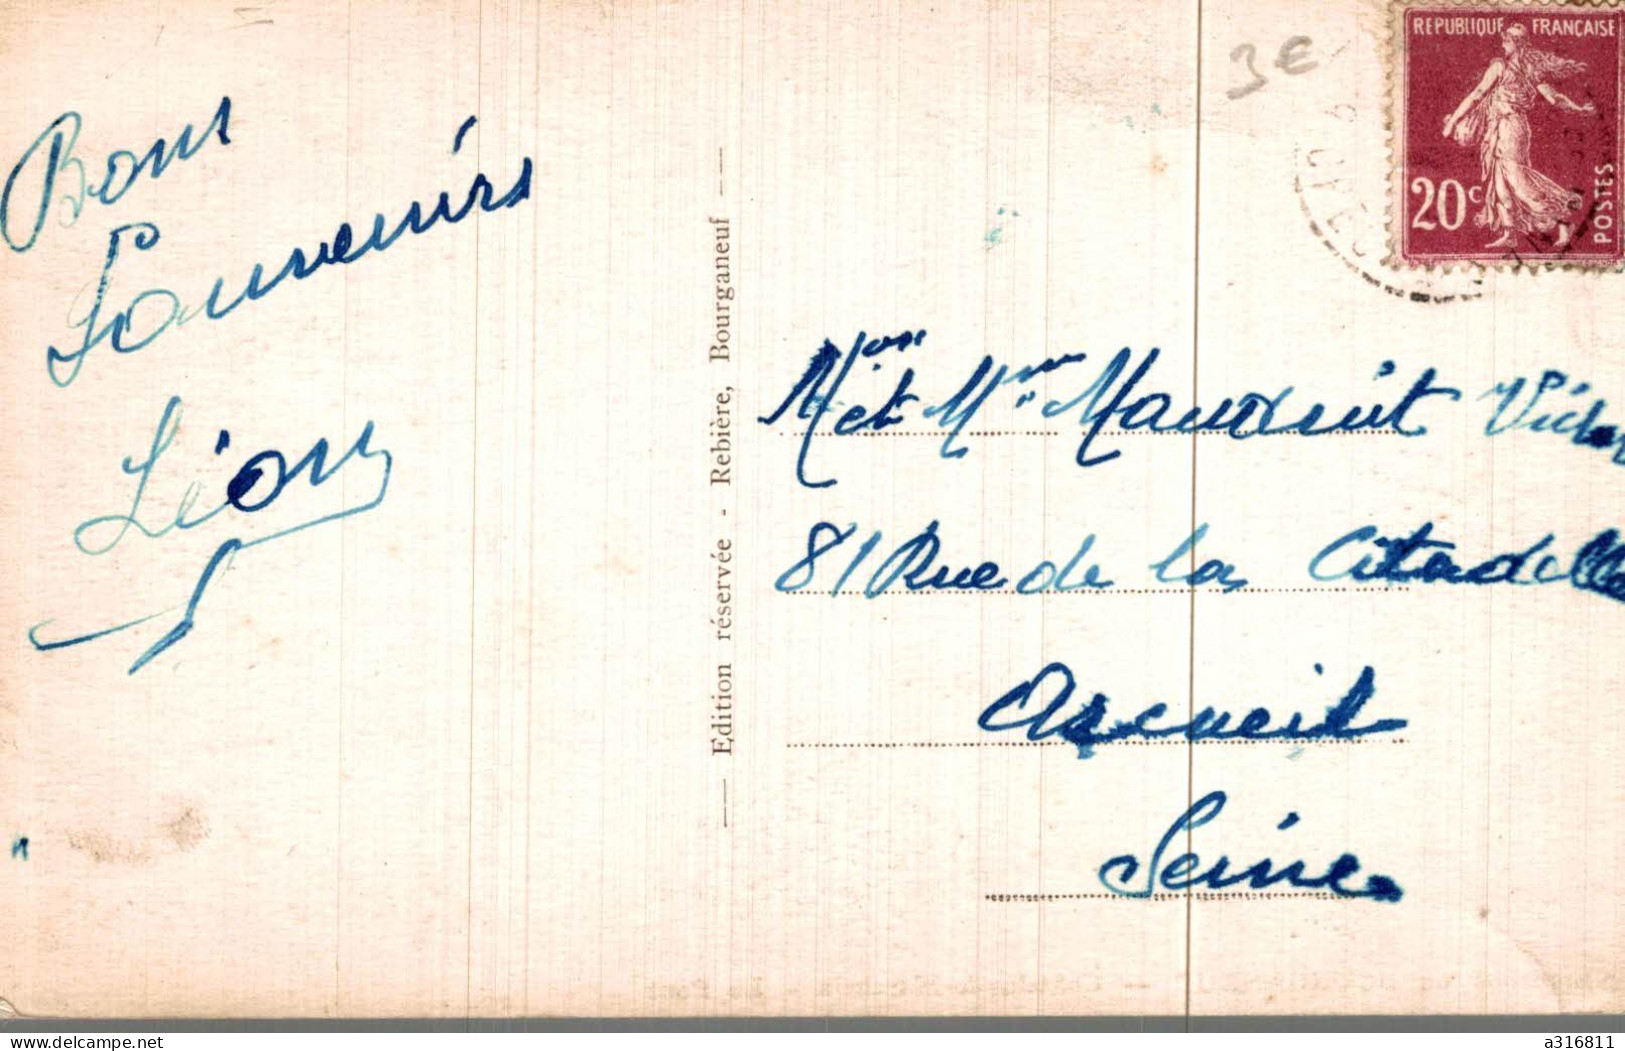 Bons
Souvenirs
Léon
Edition réservée - Rebière, Bourganeuf
3€
REPUBLIQUE FRANÇAISE
20c
POSTES
Mon et Mme Victor
81 Rue de la Citadelle
Arcueil
Seine
delcampe.net
a316811